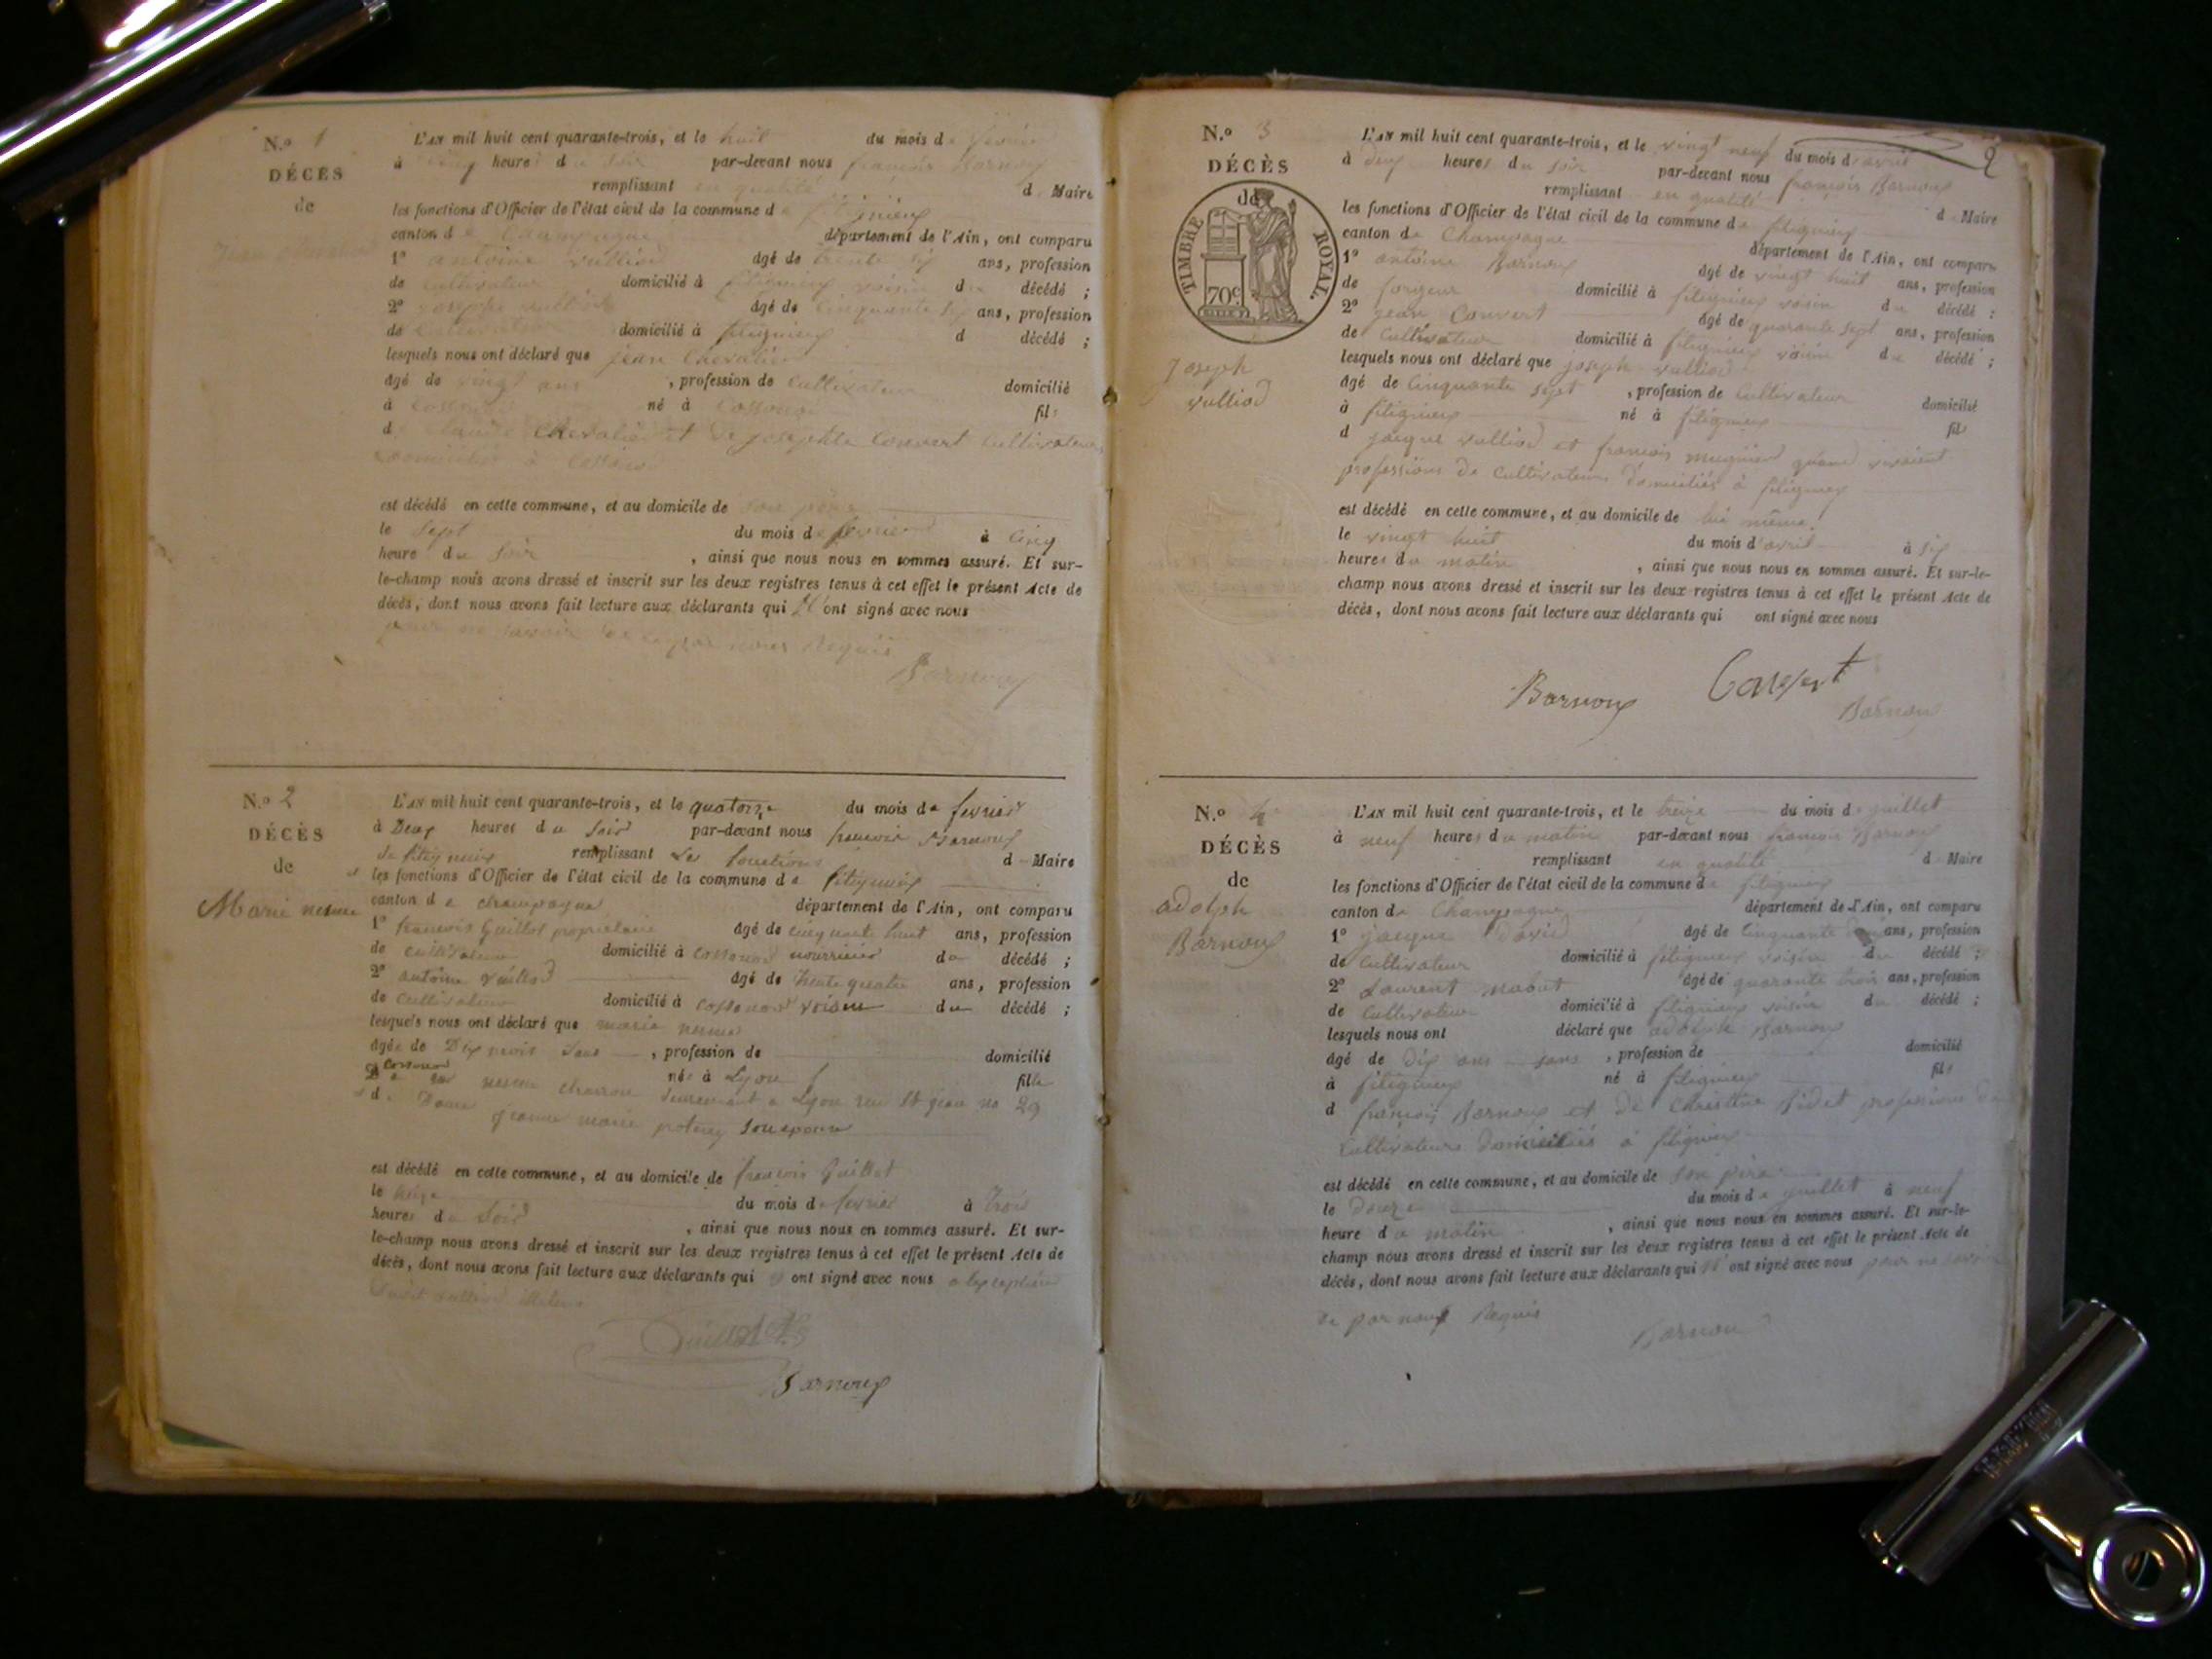 N.º 1
DÉCÈS
de
L'AN mil huit cent quarante-trois, et le huit du mois de
à heures du soir par-devant nous françois Barnoux
remplissant en qualité de Maire
les fonctions d'Officier de l'état civil de la commune de
canton de Champagne département de l'Ain, ont comparu
1º antoine vulliod âgé de trente six ans, profession
de cultivateur domicilié à fitignieux voisin du décédé ;
2º joseph âgé de cinquante ans, profession
de domicilié à fitignieux d décédé ;
lesquels nous ont déclaré que jean Chevalier
âgé de vingt ans , profession de Cultivateur domicilié
à né à fils
de Claude Chevalier et de josephte Convert Cultivateurs
domiciliés à
est décédé en cette commune, et au domicile de son père
le sept du mois de fevrier à cinq
heure du soir , ainsi que nous nous en sommes assuré. Et sur-
le-champ nous avons dressé et inscrit sur les deux registres tenus à cet effet le présent Acte de
décès, dont nous avons fait lecture aux déclarants qui n'ont signé avec nous
pour ne savoir de ce par nous requis
Barnoux
N.º 2
DÉCÈS
de
Marie
L'AN mil huit cent quarante-trois, et le quatorze du mois de fevrier
à Deux heures du soir par-devant nous francois Barnoux
remplissant les fonctions de Maire
les fonctions d'Officier de l'état civil de la commune de fitignieux
canton de champagne département de l'Ain, ont comparu
1º francois Guillot propriétaire âgé de cinquante huit ans, profession
de cultivateur domicilié à cossonod nourricier du décédé ;
2º antoine âgé de trente quatre ans, profession
de cultivateur domicilié à cossonod voisin du décédé ;
lesquels nous ont déclaré que marie
âgée de Dix mois sans , profession de domicilié
à cossonod née à Lyon fille
de charron demeurant a Lyon rue St jean no 29
jeanne marie son epouse
est décédé en cette commune, et au domicile de francois Guillot
le du mois de fevrier à trois
heures du soir , ainsi que nous nous en sommes assuré. Et sur-
le-champ nous avons dressé et inscrit sur les deux registres tenus à cet effet le présent Acte de
décès, dont nous avons fait lecture aux déclarants qui ont signé avec nous
Guillot
Barnoux
2
N.º 3
DÉCÈS
de
TIMBRE ROYAL.
70c
Joseph
vulliod
L'AN mil huit cent quarante-trois, et le vingt neuf du mois d'avril
à deux heures du soir par-devant nous françois Barnoux
remplissant en qualité de Maire
les fonctions d'Officier de l'état civil de la commune de fitignieux
canton de Champagne département de l'Ain, ont comparu
1º antoine Barnoux âgé de vingt huit ans, profession
de forgeur domicilié à fitignieux voisin du décédé ;
2º jean Convert âgé de quarante sept ans, profession
de Cultivateur domicilié à fitignieux voisin du décédé ;
lesquels nous ont déclaré que joseph vulliod
âgé de Cinquante sept , profession de Cultivateur domicilié
à fitignieux né à fitignieux fils
d jacque vulliod et francois mugnier quand vivaient
professions de Cultivateurs domiciliés à fitignieux
est décédé en cette commune, et au domicile de lui même
le vingt huit du mois d'avril à six
heures du matin , ainsi que nous nous en sommes assuré. Et sur-le-
champ nous avons dressé et inscrit sur les deux registres tenus à cet effet le présent Acte de
décès, dont nous avons fait lecture aux déclarants qui ont signé avec nous
Barnoux Convert
Barnoux
N.º 4
DÉCÈS
de
adolph
Barnoux
L'AN mil huit cent quarante-trois, et le treize du mois de juillet
à neuf heures du matin par-devant nous francois Barnoux
remplissant en qualité de Maire
les fonctions d'Officier de l'état civil de la commune de fitignieux
canton de Champagne département de l'Ain, ont comparu
1º jacque David âgé de Cinquante ans, profession
de Cultivateur domicilié à fitignieux voisin du décédé ;
2º Laurent âgé de quarante trois ans, profession
de Cultivateur domicilié à fitignieux voisin du décédé ;
lesquels nous ont déclaré que adolph Barnoux
âgé de dix ans sans , profession de domicilié
à fitignieux né à fitignieux fils
d françois Barnoux et de Christine Bidet professions de
Cultivateurs domiciliés à fitignieux
est décédé en cette commune, et au domicile de son père
le douze du mois de juillet à neuf
heure du matin , ainsi que nous nous en sommes assuré. Et sur-le-
champ nous avons dressé et inscrit sur les deux registres tenus à cet effet le présent Acte de
décès, dont nous avons fait lecture aux déclarants qui n'ont signé avec nous pour ne savoir
de par nous Requis
Barnoux